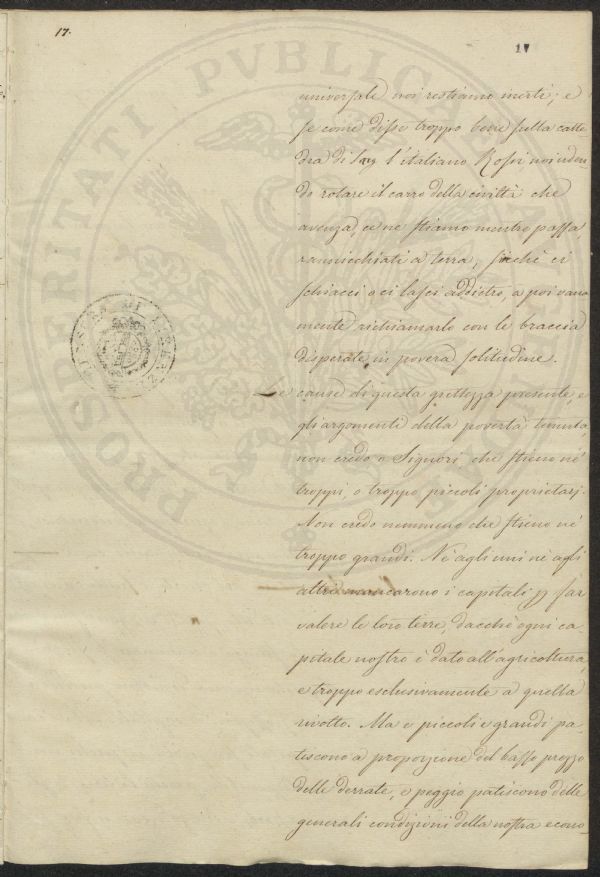 17.
17
universale noi restiamo inerti; e
se come disse troppo bene sulla catte
dra di l'italiano Rossi, noi uden-
do rotare il carro della civiltà che
avenza, ce ne stiamo mentre passa,
rannicchiati a terra, finchè ci
schiacci o ci lasci addietro, a poi vana
mente richiamarlo con le braccia
disperate in povera solitudine.
Le cause di questa grettezza presente, e
gli argomenti della povertà temuta,
non credo o Signori, che stieno nè
troppi, o troppo piccoli proprietarj.
Non credo nemmeno che stieno nè
troppo grandi. Nè agli uni nè agli
altri mancarono i capitali p far
valere le loro terre, dacchè ogni ca-
pitale nostro è dato all'agricoltura,
e troppo esclusivamente a quella
rivolto. Ma e piccoli e grandi pa-
tiscono a proporzione del basso prezzo
delle derrate, e peggio patiscono delle
generali condizioni della nostra econo-
PROSPERITATI PVBLICAE